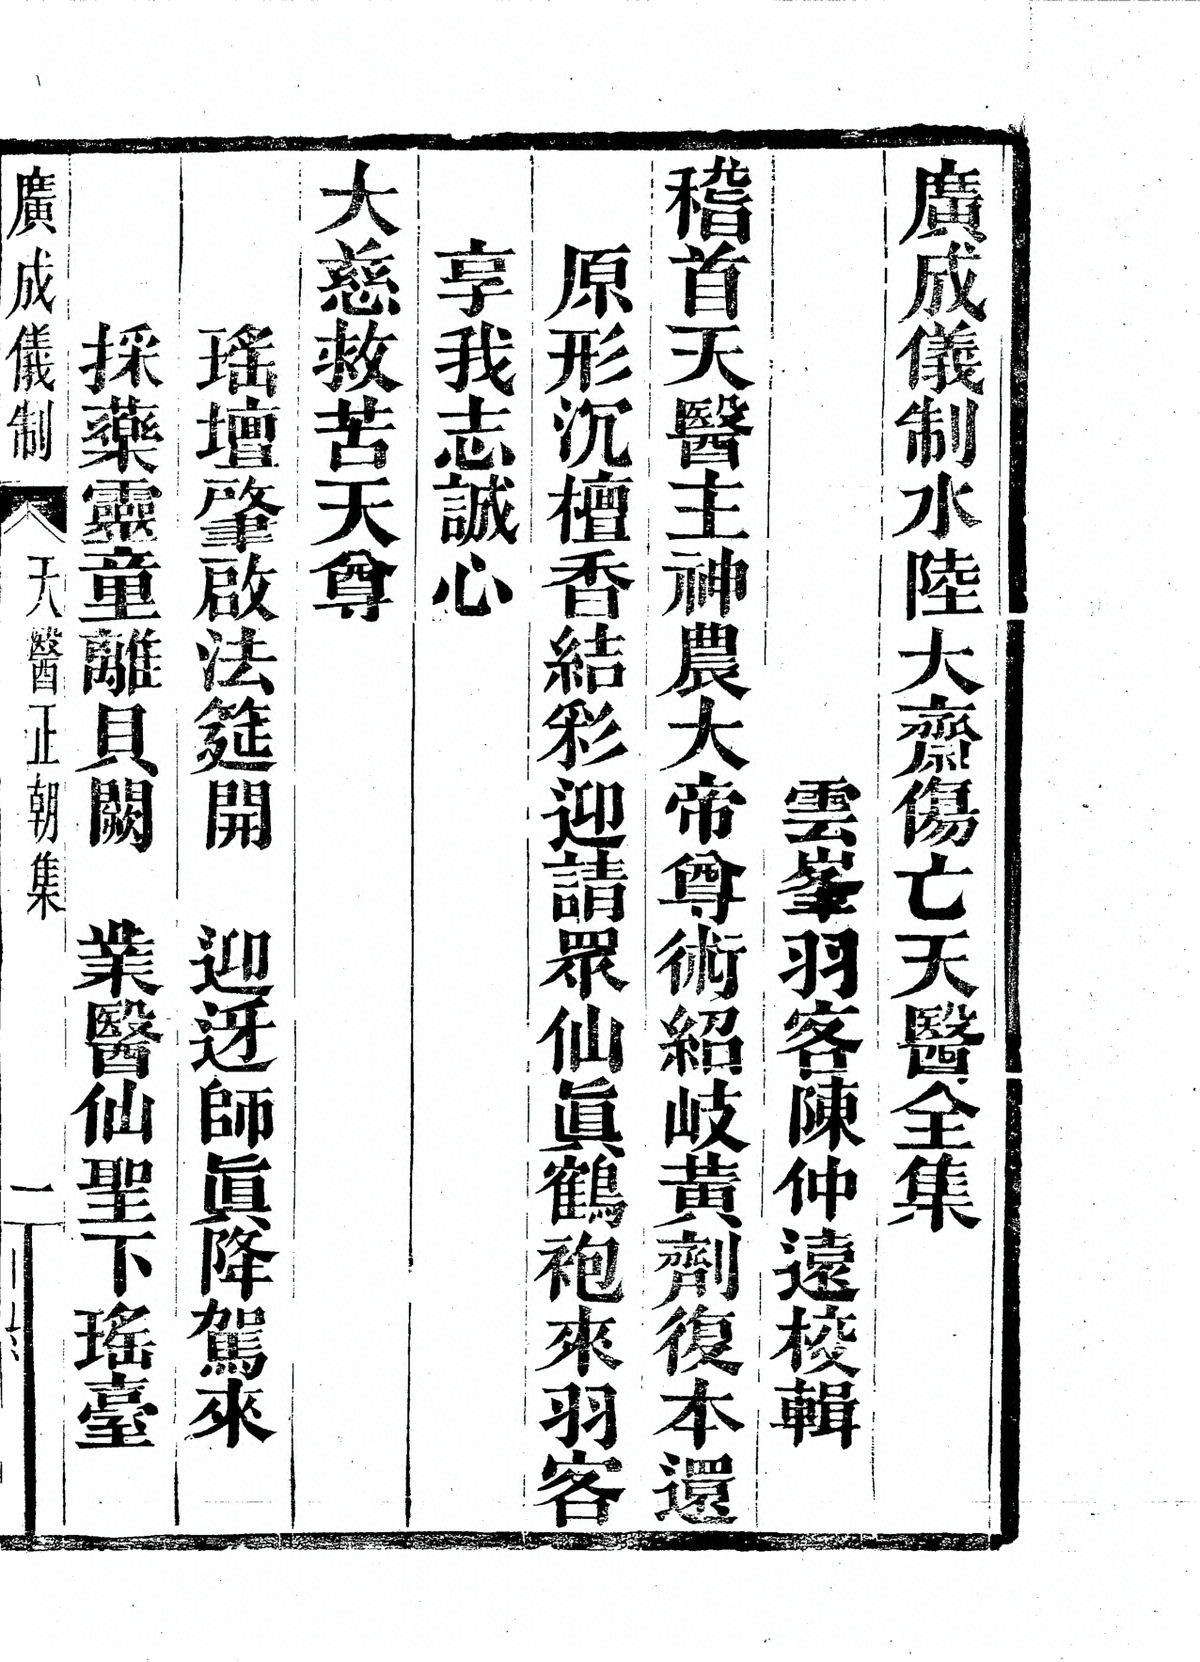 廣成儀制水陸大齋傷亡天醫全集
雲峯羽客陳仲遠校輯
稽首天醫主神農大帝尊術紹岐黃劑復本還
原形沉檀香結彩迎請眾仙眞鶴袍來羽客
享我志誠心
大慈救苦天尊
瑤壇肇啟法筵開　迎迓師眞降駕來
採藥靈童離貝闕　業醫仙聖下瑤臺
廣成儀制　天醫正朝集　一